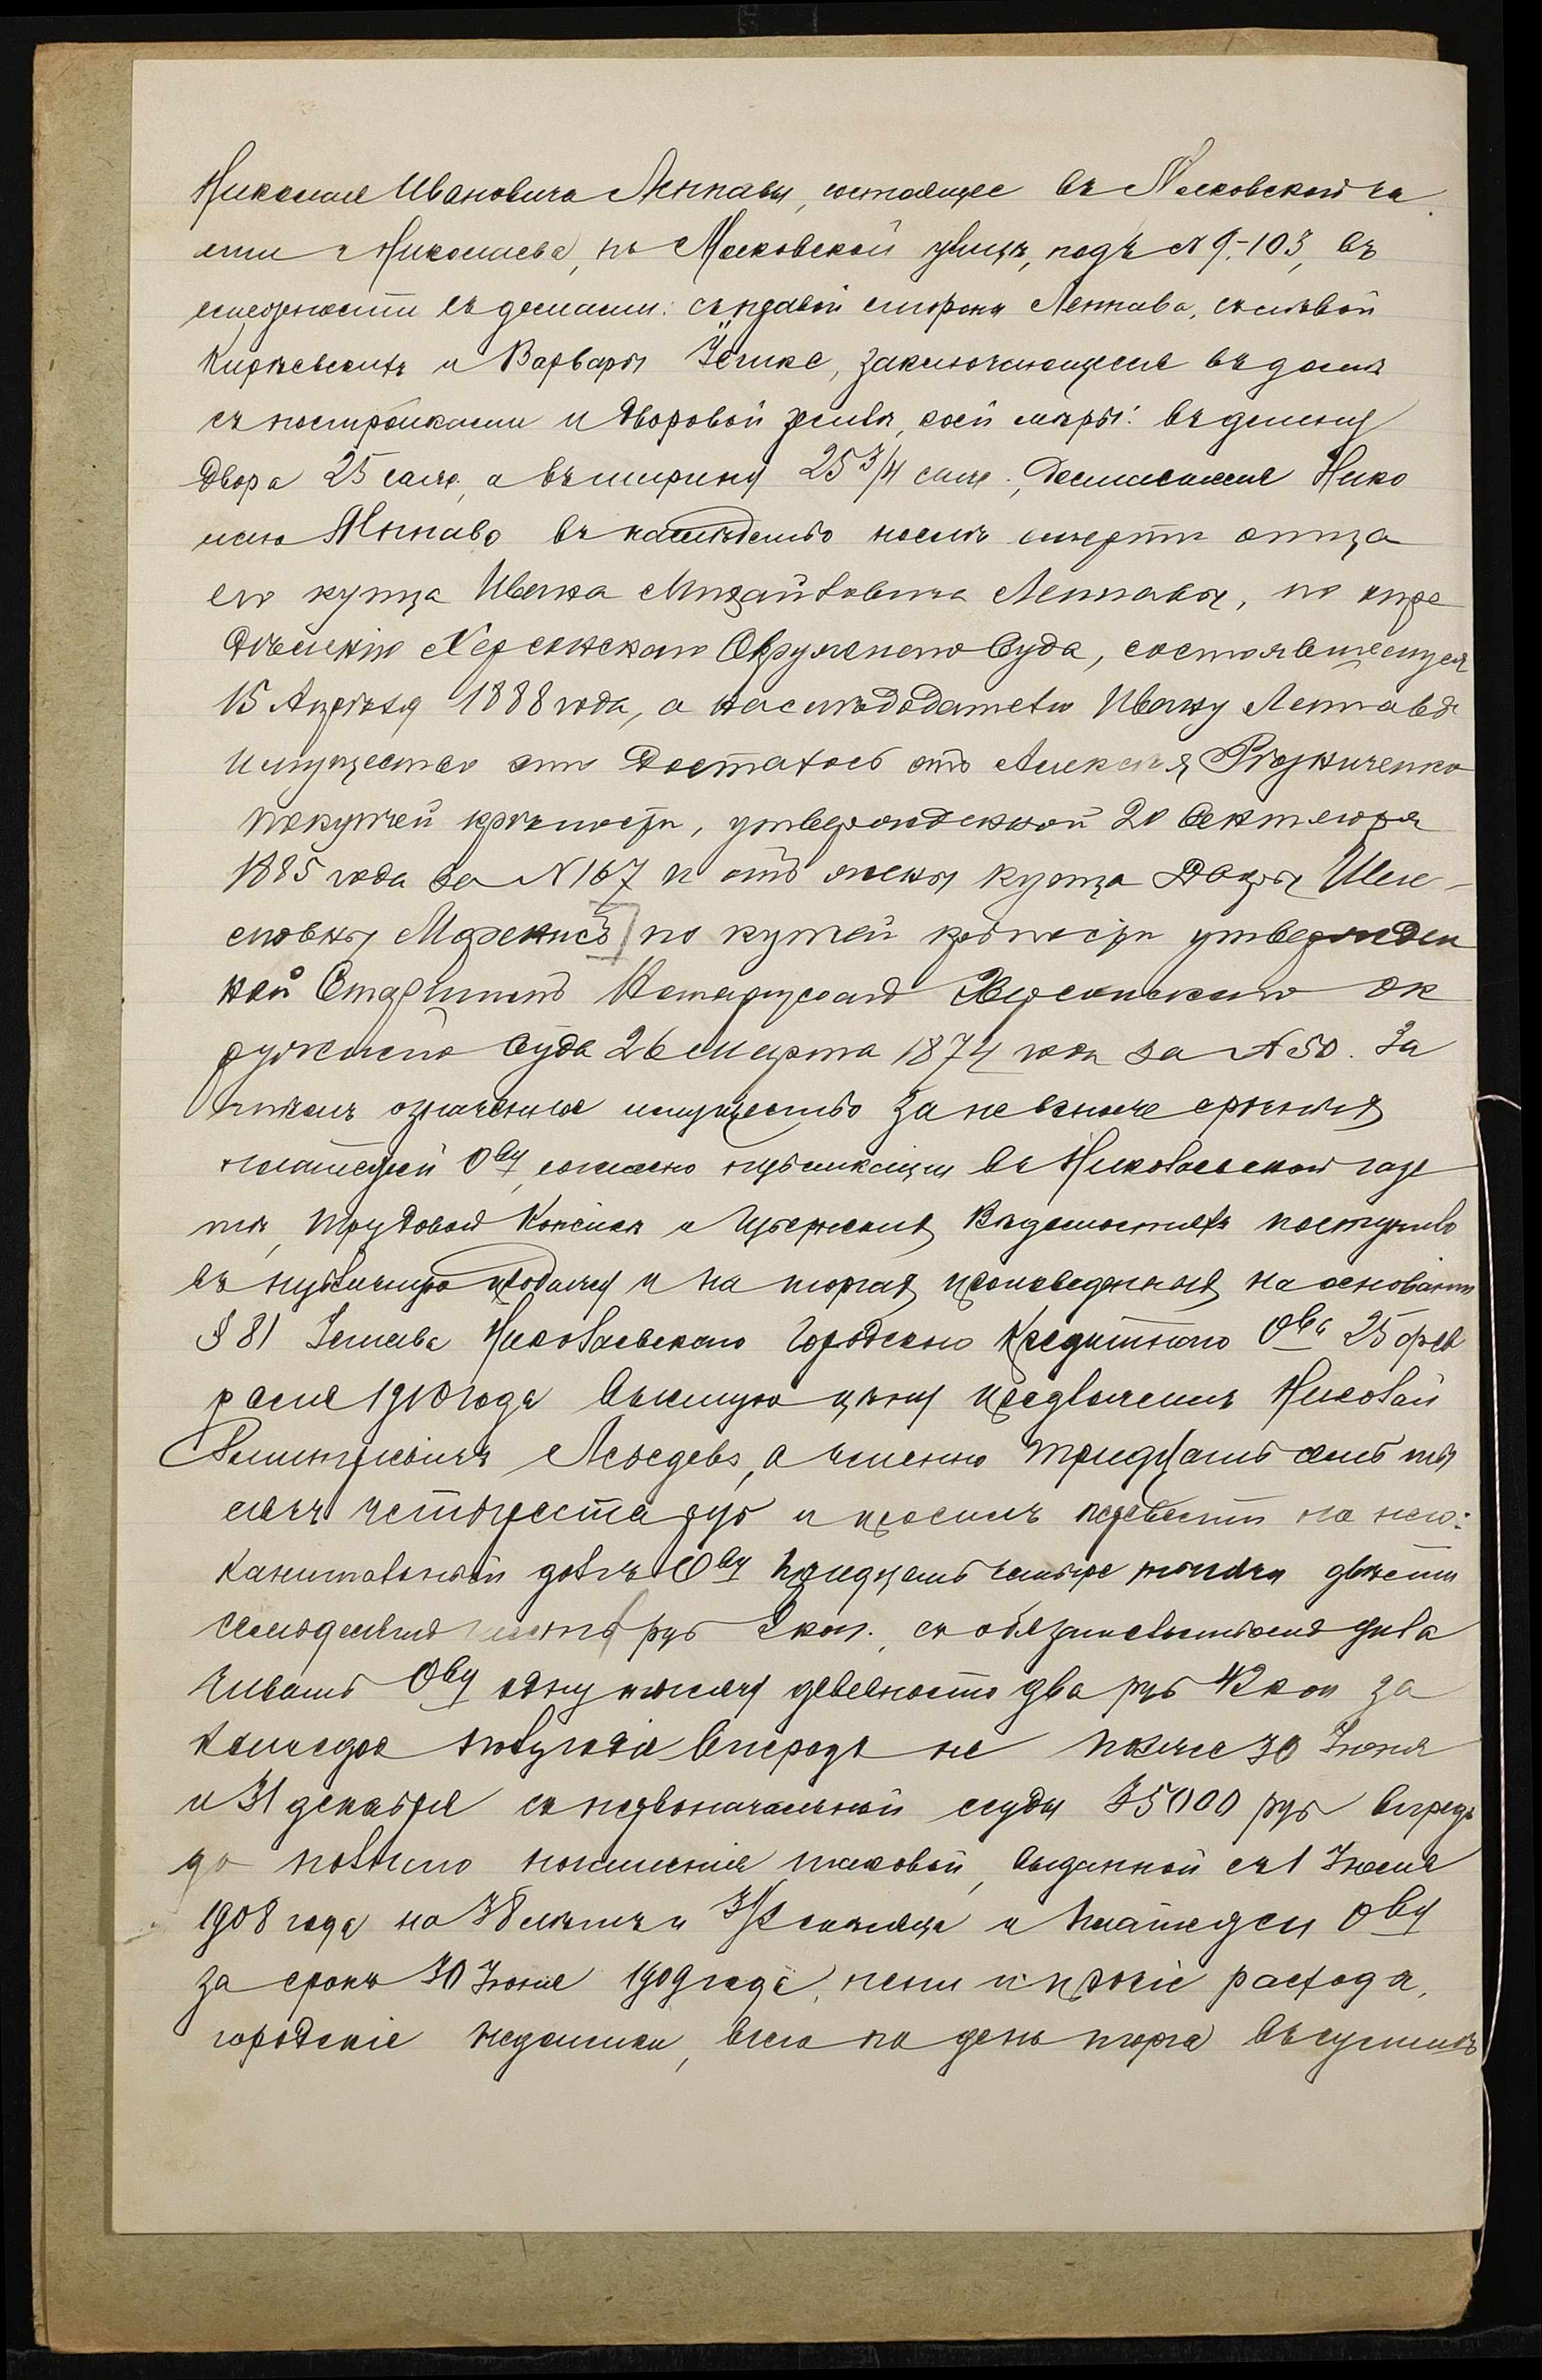 Николая Ивановича Леппавы, состоящее въ Московской ча
сти г Николаева, по Московской улицѣ, подъ № 9-103, въ
смежности съ домами: съ правой стороны Леппава, съ лѣвой
и Варвары заключающееся въ домѣ
съ постройками и дворовой земли, коей мѣры: въ длину
двора 25 саж., а въ ширину 25 3/4 саж., доставшееся Нико
лаю Леппавѣ въ наслѣдство послѣ смерти отца
его купца Ивана Михайловича Леппавы, по опре
дѣленію Херсонскаго Окружнаго Суда, состоявшемуся
15 Апрѣля 1888 года, а наслѣдодателю Ивану Леппавѣ
имущество это досталось отъ Алексѣя
по купчей крѣпости, утвержденной 20 Сентября
1885 года за № 167 и отъ жены купца
по купчей крѣпости утвержден
ной Старшимъ Нотаріусомъ Херсонскаго Ок
ружнаго Суда 26 Марта 1874 года за № 50. За
тѣмъ означенное имущество за невзносъ срочныхъ
платежей Ову, согласно публикаціи въ Николаевской газе
тѣ, Трудовой Копѣйкѣ и Губернскихъ Вѣдомостяхъ поступило
въ публичную продажу и на торгахъ, произведенныхъ на основаніи
§ 81 Устава Николаевскаго Городского Кредитнаго Ова 25 фев
раля 1910 года высшую цѣну предложилъ Николай
Лебедевъ, а именно тридцать семь ты
сячъ четыреста руб и просилъ перевести на него:
капитальный долгъ Ову тридцать четыре тысячи двѣсти
семьдесятъ шесть руб 2 коп., съ обязательствомъ упла
чивать Ову одну тысячу девяносто два руб 42 коп за
каждое полугодіе впередъ не позже 30 Іюня
и 31 декабря съ первоначальной ссуды 35000 руб впредь
до полнаго погашенія таковой, выданной съ 1 Іюля
1908 года на 38 лѣтъ и мѣсяца и платежи Ову
за срокъ 30 Іюня 1909 года, пени и прочіе расходы,
городскіе недоимки, всего на день торга въ суммѣ